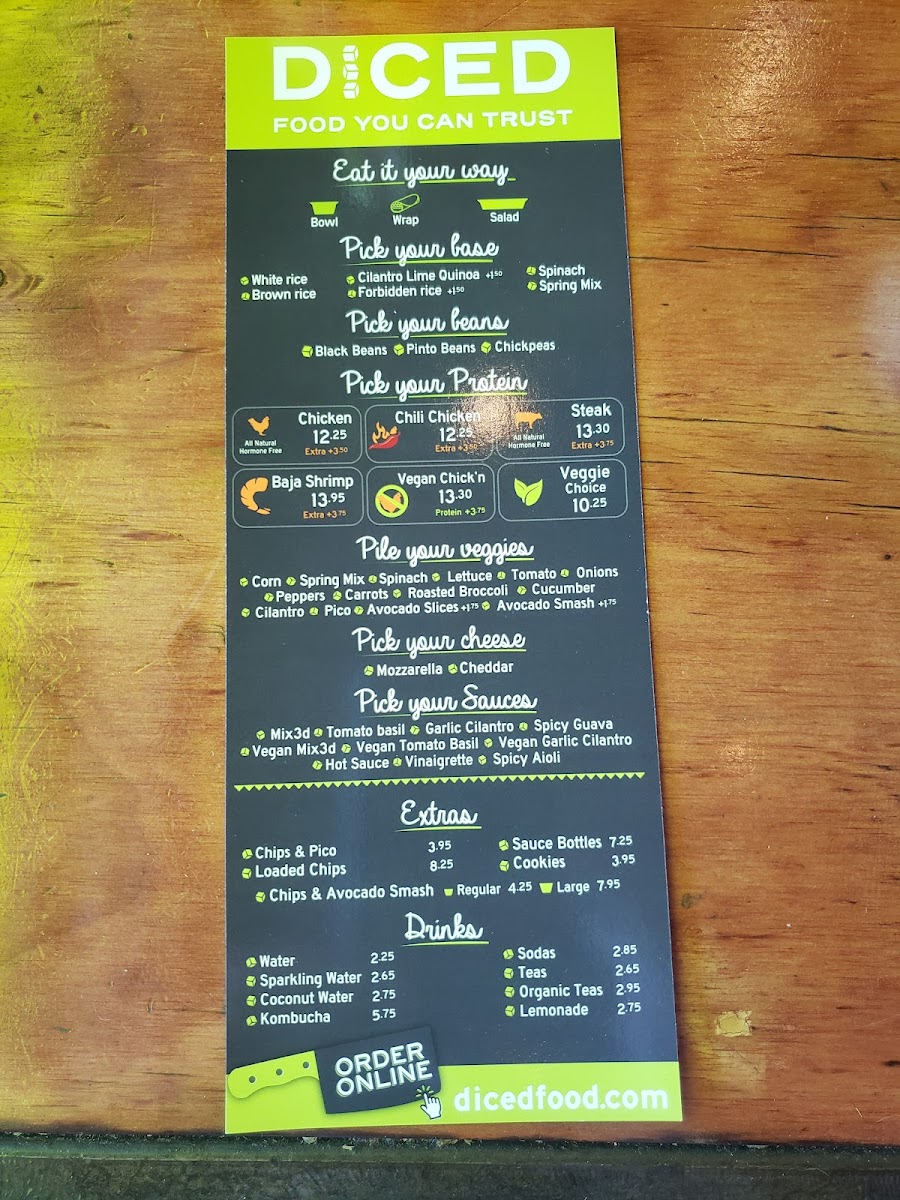 DICED
FOOD YOU CAN TRUST
Eat it your way
Bowl Wrap Salad
Pick your base
White rice Cilantro Lime Quinoa +1.50 Spinach
Brown rice Forbidden rice +1.50 Spring Mix
Pick your beans
Black Beans Pinto Beans Chickpeas
Pick your Protein
Chicken
12.25
Extra +3.50
All Natural
Hormone Free
Chili Chicken
12.25
Extra +3.50
Steak
13.30
Extra +3.75
All Natural
Hormone Free
Baja Shrimp
13.95
Extra +3.75
Vegan Chick'n
13.30
Protein +3.75
Veggie
Choice
10.25
Pile your veggies
Corn Spring Mix Spinach Lettuce Tomato Onions
Peppers Carrots Roasted Broccoli Cucumber
Cilantro Pico Avocado Slices +1.75 Avocado Smash +1.75
Pick your cheese
Mozzarella Cheddar
Pick your Sauces
Mix3d Tomato basil Garlic Cilantro Spicy Guava
Vegan Mix3d Vegan Tomato Basil Vegan Garlic Cilantro
Hot Sauce Vinaigrette Spicy Aioli
Extras
Chips & Pico 3.95 Sauce Bottles 7.25
Loaded Chips 8.25 Cookies 3.95
Chips & Avocado Smash Regular 4.25 Large 7.95
Drinks
Water 2.25 Sodas 2.85
Sparkling Water 2.65 Teas 2.65
Coconut Water 2.75 Organic Teas 2.95
Kombucha 5.75 Lemonade 2.75
ORDER
ONLINE
dicedfood.com